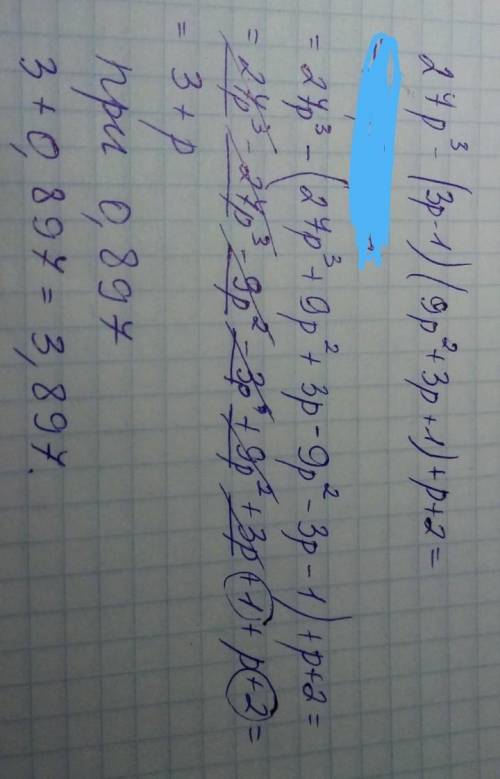 27p³ - (3p-1)(9p²+3p+1)+p+2=
= 27p³ - (27p³+9p²+3p-9p²-3p-1)+p+2=
= 27p³ - 27p³ - 9p² - 3p + 9p² + 3p + 1 + p + 2 =
= 3+p
при 0,897
3+0,897=3,897.